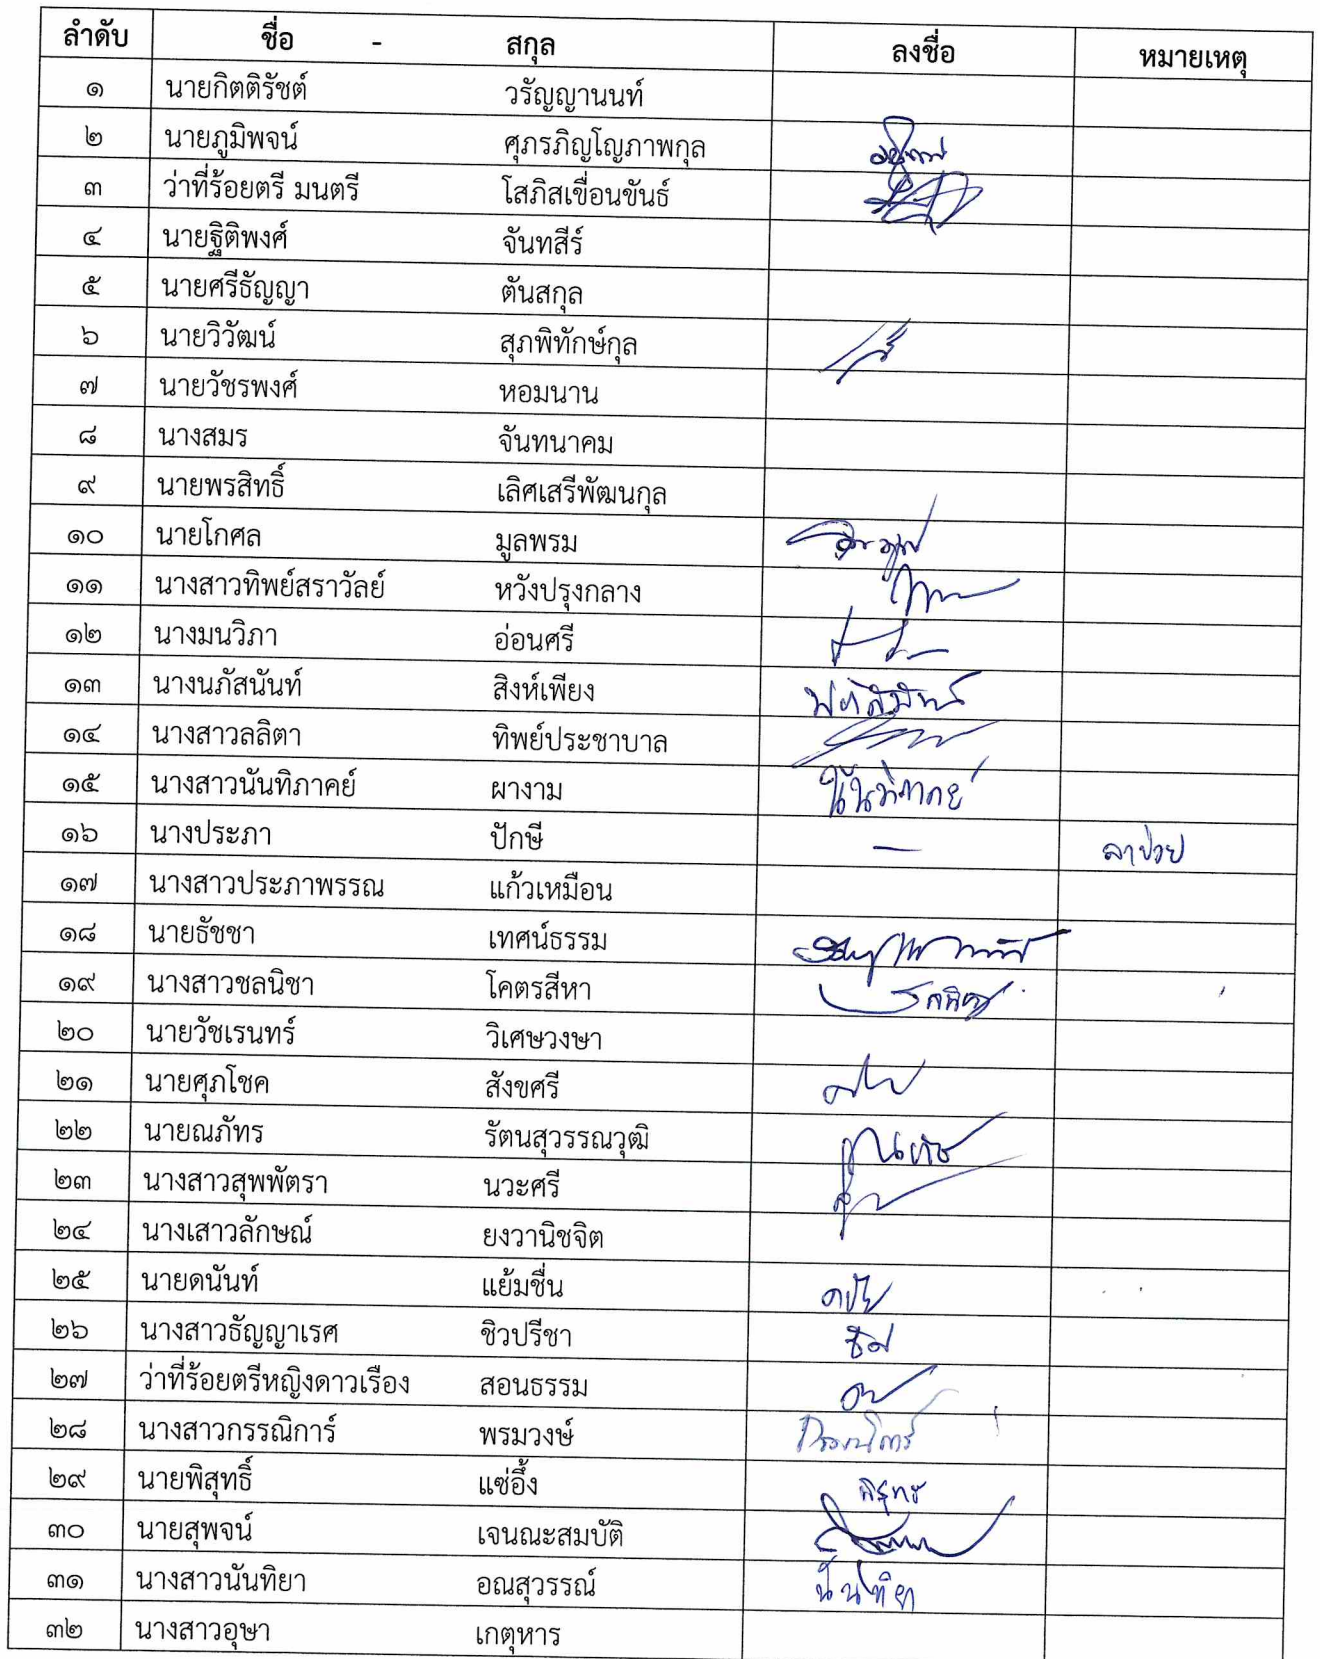 ลำดับ ชื่อ - สกุล ลงชื่อ หมายเหตุ
๑ นายกิตติรัชต์ วรัญญานนท์
๒ นายภูมิพจน์ ศุภรภิญโญภาพกุล
๓ ว่าที่ร้อยตรี มนตรี โสภิสเขื่อนขันธ์
๔ นายฐิติพงศ์ จันทสีร์
๕ นายศรีธัญญา ตันสกุล
๖ นายวิวัฒน์ สุภพิทักษ์กุล
๗ นายวัชรพงศ์ หอมนาน
๘ นางสมร จันทนาคม
๙ นายพรสิทธิ์ เลิศเสรีพัฒนกุล
๑๐ นายโกศล มูลพรม
๑๑ นางสาวทิพย์สราวัลย์ หวังปรุงกลาง
๑๒ นางมนวิภา อ่อนศรี
๑๓ นางนภัสนันท์ สิงห์เพียง
๑๔ นางสาวลลิตา ทิพย์ประชาบาล
๑๕ นางสาวนันทิภาคย์ ผางาม นันทิภาคย์
๑๖ นางประภา ปักษี — ลาป่วย
๑๗ นางสาวประภาพรรณ แก้วเหมือน
๑๘ นายธัชชา เทศน์ธรรม
๑๙ นางสาวชลนิชา โคตรสีหา
๒๐ นายวัชเรนทร์ วิเศษวงษา
๒๑ นายศุภโชค สังขศรี
๒๒ นายณภัทร รัตนสุวรรณวุฒิ
๒๓ นางสาวสุพพัตรา นวะศรี
๒๔ นางเสาวลักษณ์ ยงวานิชจิต
๒๕ นายดนันท์ แย้มชื่น
๒๖ นางสาวธัญญาเรศ ชิวปรีชา
๒๗ ว่าที่ร้อยตรีหญิงดาวเรือง สอนธรรม
๒๘ นางสาวกรรณิการ์ พรมวงษ์ กรรณิการ์
๒๙ นายพิสุทธิ์ แซ่อึ้ง
๓๐ นายสุพจน์ เจนณะสมบัติ
๓๑ นางสาวนันทิยา อณสุวรรณ์ นันทิยา
๓๒ นางสาวอุษา เกตุหาร